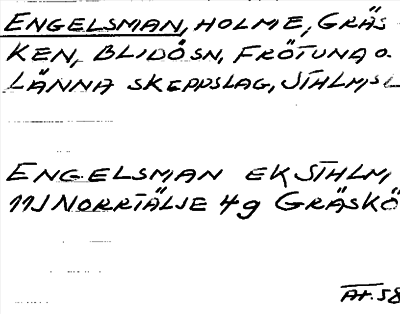 ENGELSMAN, HOLME, GRÄS-
KEN, BLIDÖSN, FRÖTUNA O.
LÄNNA SKEPPSLAG, STHLMSL
ENGELSMAN EK STHLM,
11J NORRTÄLJE 4g GRÄSKÖ
At. 58